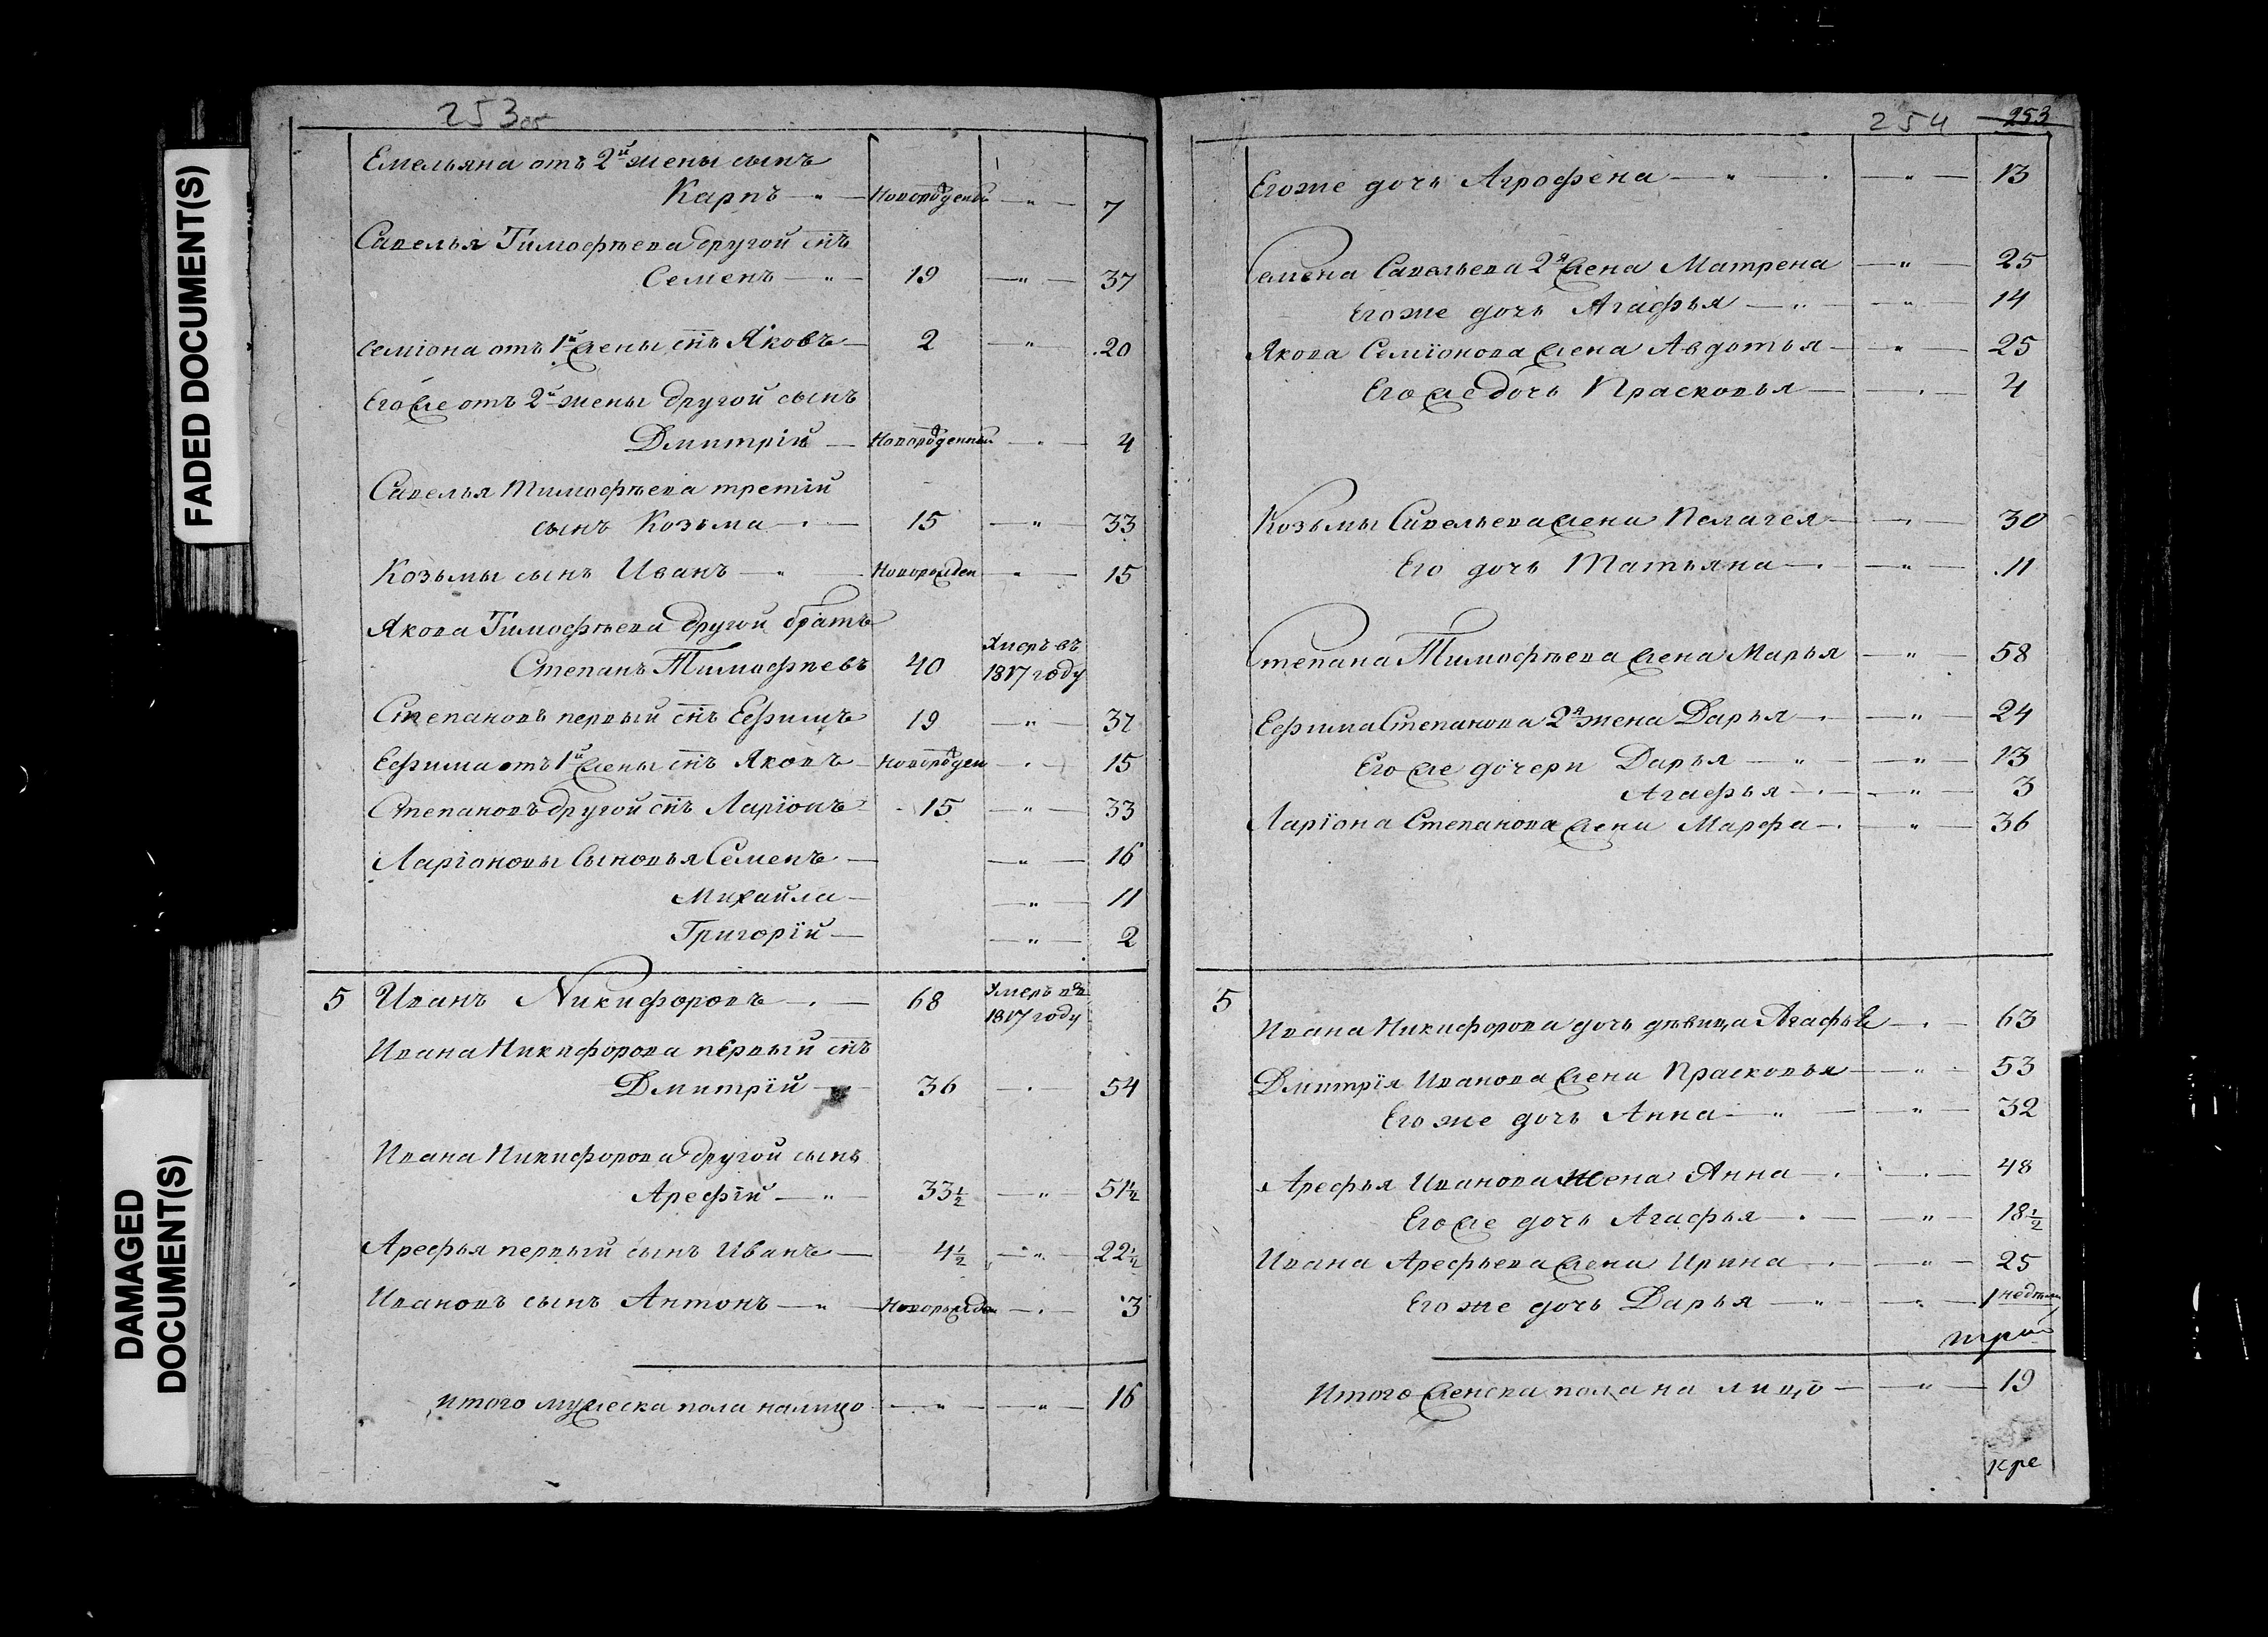 FADED DOCUMENT(S)
DAMAGED
DOCUMENT(S)
253об
Емельяна отъ 2й жены сынъ
Карпъ — " — Новорожденъ — " — 7
Савелья Тимофѣева другой снъ
Семенъ — " — 19 — " — 37
Семіона отъ 1й жены снъ Яковъ — 2 — " — 20
Его же отъ 2й жены другой сынъ
Дмитрій — Новорожденный — " — 4
Савелья Тимофѣева третій
сынъ Козьма — " — 15 — " — 33
Козьмы сынъ Иванъ — " — Новорожден — " — 15
Якова Тимофѣева другой братъ
Степанъ Тимофѣевъ 40 Умеръ въ 1817 году
Степановъ первый снъ Ефимъ 19 — " — 37
Ефима отъ 1й жены снъ Яковъ — Новорожден — " — 15
Степановъ другой снъ Ларіонъ — 15 — " — 33
Ларіоновы сыновья Семенъ — — " — 16
Михайла — — " — 11
Григорій — — " — 2
5 Иванъ Никифоровъ — " — 68 Умеръ въ 1817 году
Ивана Никифорова первый снъ
Дмитрій — 36 — " — 54
Ивана Никифорова другой сынъ
Арефій — " — 33½ — " — 51½
Арефья первый сынъ Иванъ — 4½ — " — 22½
Ивановъ сынъ Антонъ — " — Новорожден — " — 3
итого мужеска пола налицо — " — — " — 16
254 253
Его же дочь Агрофена — " — — " — 13
Семена Савельева 2я жена Матрена — " — 25
Его же дочь Агафья — " — — " — 14
Якова Семіонова жена Авдотья — " — 25
Его же дочь Прасковья — — " — 4
Козьмы Савельева жена Пелагея — " — 30
Его дочь Татьяна — " — — " — 11
Степана Тимофѣева жена Марья — " — 58
Ефима Степанова 2я жена Дарья — " — — " — 24
Его же дочери Дарья — " — — " — 13
Агафья — " — — " — 3
Ларіона Степанова жена Марфа — " — — " — 36
5 Ивана Никифорова дочь дѣвица Агафья — " — 63
Дмитрія Иванова жена Прасковья — " — 53
Его же дочь Анна — " — — " — 32
Арефья Иванова жена Анна — " — — " — 48
Его же дочь Агафья — " — — " — 18½
Ивана Арефьева жена Ирина — " — — " — 25
Его же дочь Дарья — " — — " — 1 недели
Итого женска пола на лицо — — " — 19
кре